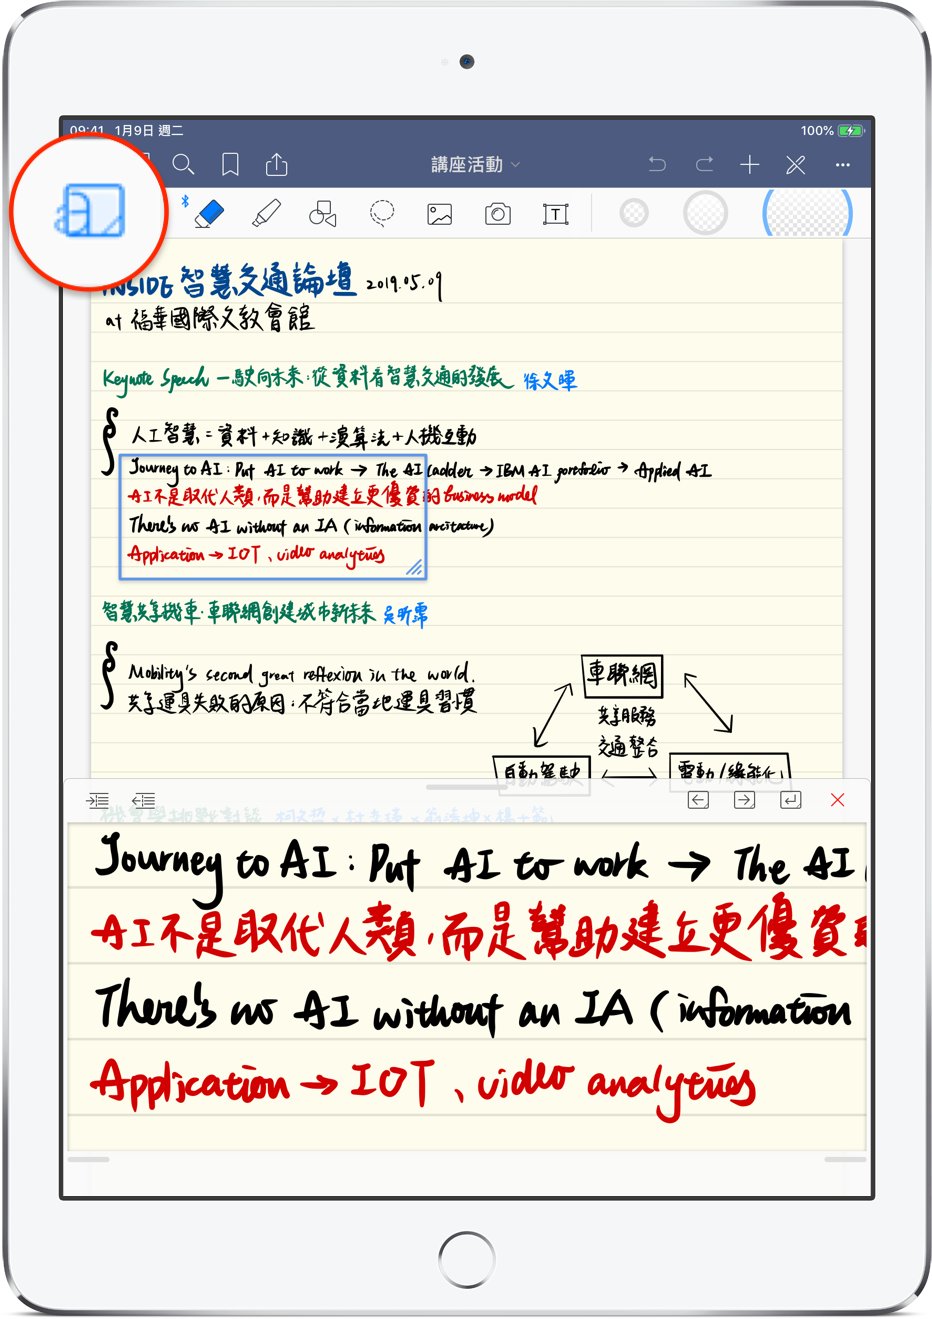 09:41 1月9日 週二
100%
講座活動
T
INSIDE 智慧交通論壇 2019.05.09
at 福華國際文教會館
Keynote Speech 一駛向未來:從資料看智慧交通的發展 徐文暉
人工智慧 = 資料+知識+演算法+人機互動
Journey to AI : Put AI to work → The AI ladder → IBM AI portfolio → Applied AI
AI不是取代人類,而是幫助建立更優質的business model
There's no AI without an IA (information arcitature)
Application → IOT、video analytics
智慧共享機車·車聯網創建城市新未來 吳昕霈
Mobility's second great reflexion in the world.
共享運具失敗的原因:不符合當地運具習慣
車聯網
共享服務
交通整合
自動駕駛
電動/綠能化
Journey to AI : Put AI to work → The AI
AI不是取代人類,而是幫助建立更優質
There's no AI without an IA (information
Application → IOT、video analytics